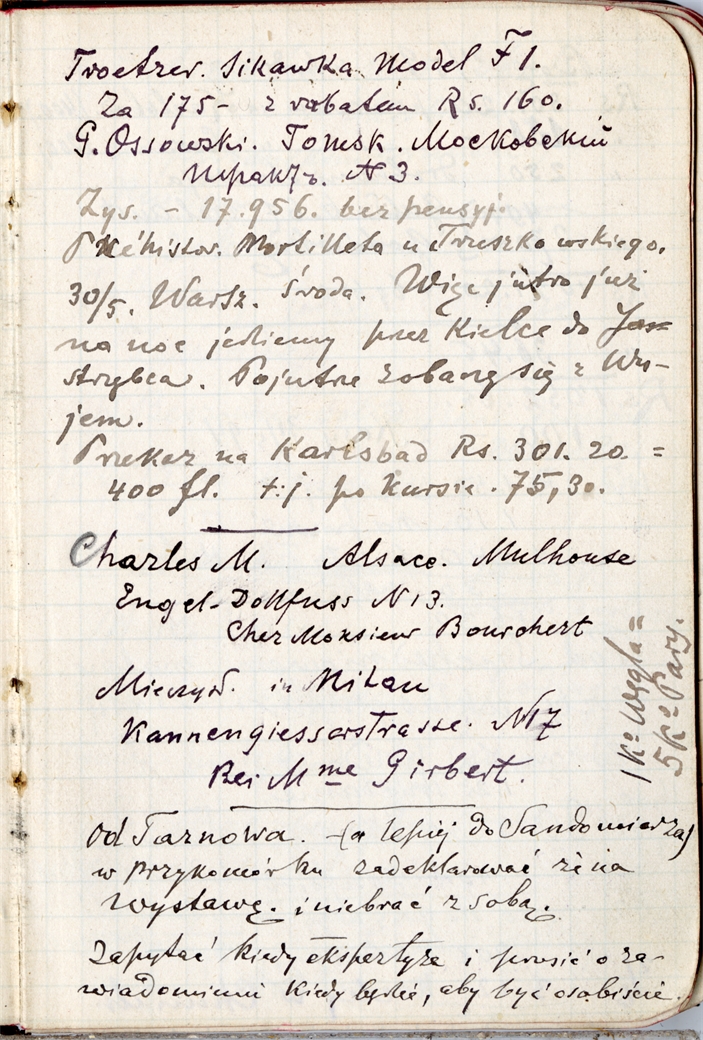 Troetzer. Sikawka Model F 1.
Za 175 – z rabatem Rs. 160.
G. Ossowski. Tomsk. Московскій
трактъ. № 3.
Zys. – 17.956. bez pensyj.
Préhistor. Mortilleta u Truszkowskiego.
30/5. Warsz. Środa. Więc jutro już
na noc jedziemy przez Kielce do Jas=
strzębca. Pojutrze zobaczę się z Wu–
jem.
Przekaz na Karlsbad Rs. 301. 20. =
400 fl. t.j. po kursie. 75,30.
Charles M. Alsace. Mulhouse
Engel-Dollfuss N 13.
Chez Monsieur Bourchert
Mieczysł. in Milau
Kannengiesserstrasse. N 17
Bei Mme Girbert.
1 Ko Węgla =
5 Ko Pary.
Od Tarnowa. – (a lepiej do Sandomierza)
w przykomórku zadeklarować że na
wystawę. i niebrać z sobą.
Zapytać kiedy ekspertyza i prosić o za–
wiadomienie kiedy będzie, aby być osobiście.